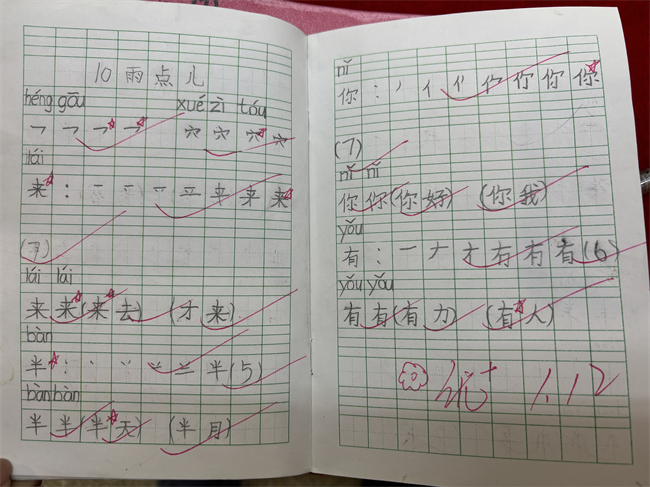 10 雨点儿
héng gōu xué zì tóu
乛 乛 乛 乛 穴 穴 穴 穴
lái
来：一 一 一 平 来 来
(7)
lái lái
来 来(来去) (才来)
bàn
半：丶 丷 半(5)
bàn bàn
半 半(半天) (半月)
nǐ
你：丿 亻 你 你 你 你
(7)
nǐ nǐ
你 你(你好) (你我)
yǒu
有：一 ナ 才 有 有 有(6)
yǒu yǒu
有 有(有力) (有人)
优+ 1.12